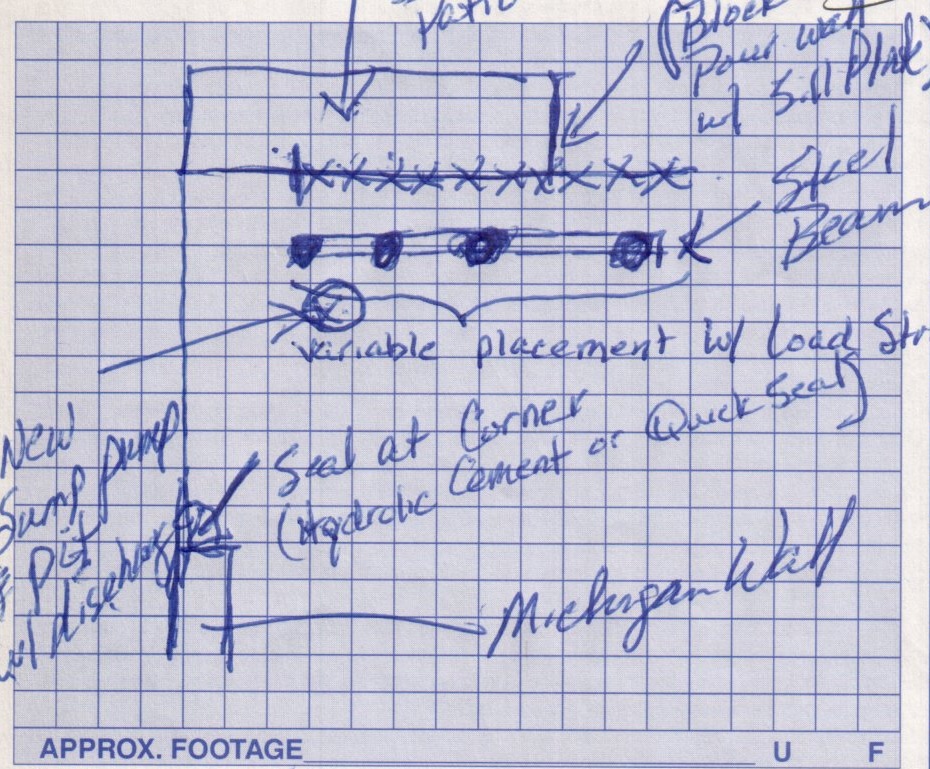 Patio
(Block
Pour Wall
w/ Sill Plate)
Steel
Beam
variable placement w/ Load Str
New
Sump pump
pit
w/ discharge
Seal at Corner
(Hydrolic Cement or Quick Seal)
Michigan Wall
APPROX. FOOTAGE
U F